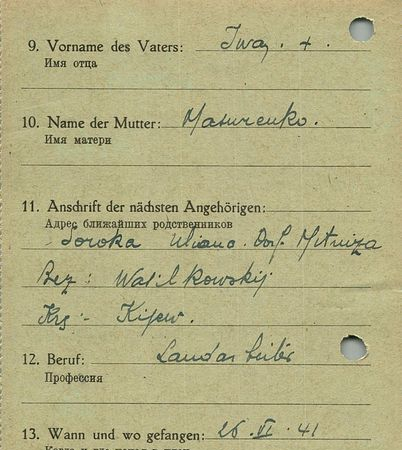 9. Vorname des Vaters: Iwan. +.
Имя отца
10. Name der Mutter: Masurenko.
Имя матери
11. Anschrift der nächsten Angehörigen:
Адрес ближайших родственников
Soroka Uliana. Dorf Mitniza
Bez: Wasilkowskij
Krs:- Kijew.
12. Beruf: Landarbeiter
Профессия
13. Wann und wo gefangen: 26. VI. 41